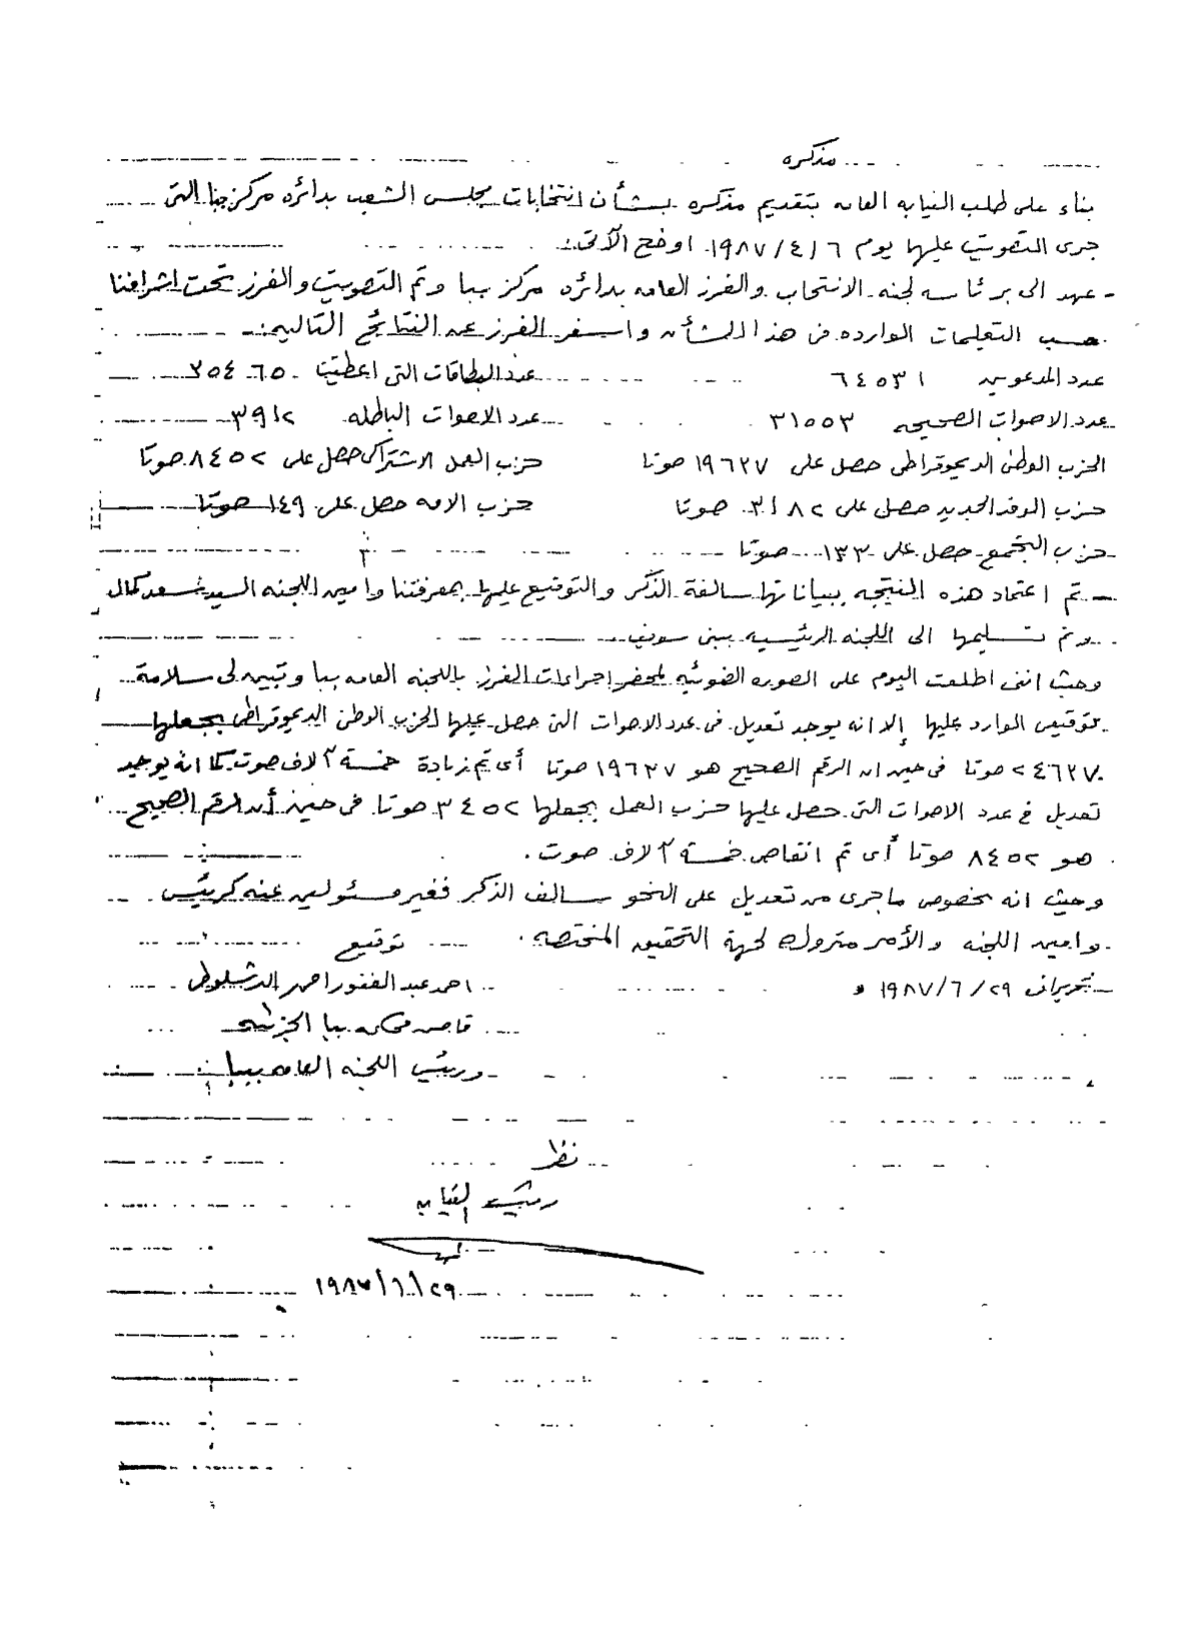 مذكره
بناء على طلب النيابه العامه بتقديم مذكره بشأن انتخابات مجلس الشعب بدائره مركز ببا التى
جرى التصويت عليها يوم ١٩٨٧/٤/٦ اوضح الآتى:
- عهد الى برئاسه لجنه الانتخاب والفرز العامه بدائره مركز ببا وتم التصويت والفرز تحت اشرافنا
حسب التعليمات الوارده فى هذا الشأن واسفر الفرز عن النتائج التاليه:-
عدد المدعوين ٦٤٥٣١ عدد البطاقات التى اعطيت ٣٥٤٦٥
عدد الاصوات الصحيحه ٣١٥٥٣ عدد الاصوات الباطله ٣٩١٢
الحزب الوطنى الديموقراطى حصل على ١٩٦٣٧ صوتا حزب العمل الاشتراكى حصل على ٨٤٥٢ صوتا
حزب الوفد الجديد حصل على ٣١٨٢ صوتا حزب الامه حصل على ١٤٩ صوتا
حزب التجمع حصل على ١٣٣ صوتا
- تم اعتماد هذه النتيجه ببياناتها سالفة الذكر والتوقيع عليها بمعرفتنا وامين اللجنه السيد سعد كمال
وتم تسليمها الى اللجنه الرئيسيه ببنى سويف
وحيث اننى اطلعت اليوم على الصوره الضوئيه لمحضر اجراءات الفرز باللجنه العامه ببا وتبين لى سلامة
توقيعى الوارد عليها إلا انه يوجد تعديل فى عدد الاصوات التى حصل عليها الحزب الوطنى الديموقراطى بجعلها
٢٤٦٣٧ صوتا فى حين ان الرقم الصحيح هو ١٩٦٣٧ صوتا أى تم زيادة خمسة آلاف صوت كما انه يوجد
تعديل فى عدد الاصوات التى حصل عليها حزب العمل بجعلها ٣٤٥٢ صوتا فى حين أن الرقم الصحيح
هو ٨٤٥٢ صوتا أى تم انقاص خمسة آلاف صوت.
وحيث انه بخصوص ما جرى من تعديل على النحو سالف الذكر فغير مسئولين عنه كرئيس
وامين اللجنه والأمر متروك لجهة التحقيق المختصه. توقيع
تحريرا فى ١٩٨٧/٦/٢٩ احمد عبد الغفور احمد
قاضى محكمه ببا الجزئيه
ورئيس اللجنه العامه ببا
نظر
رئيس النيابه
١٩٨٧/٦/٢٩